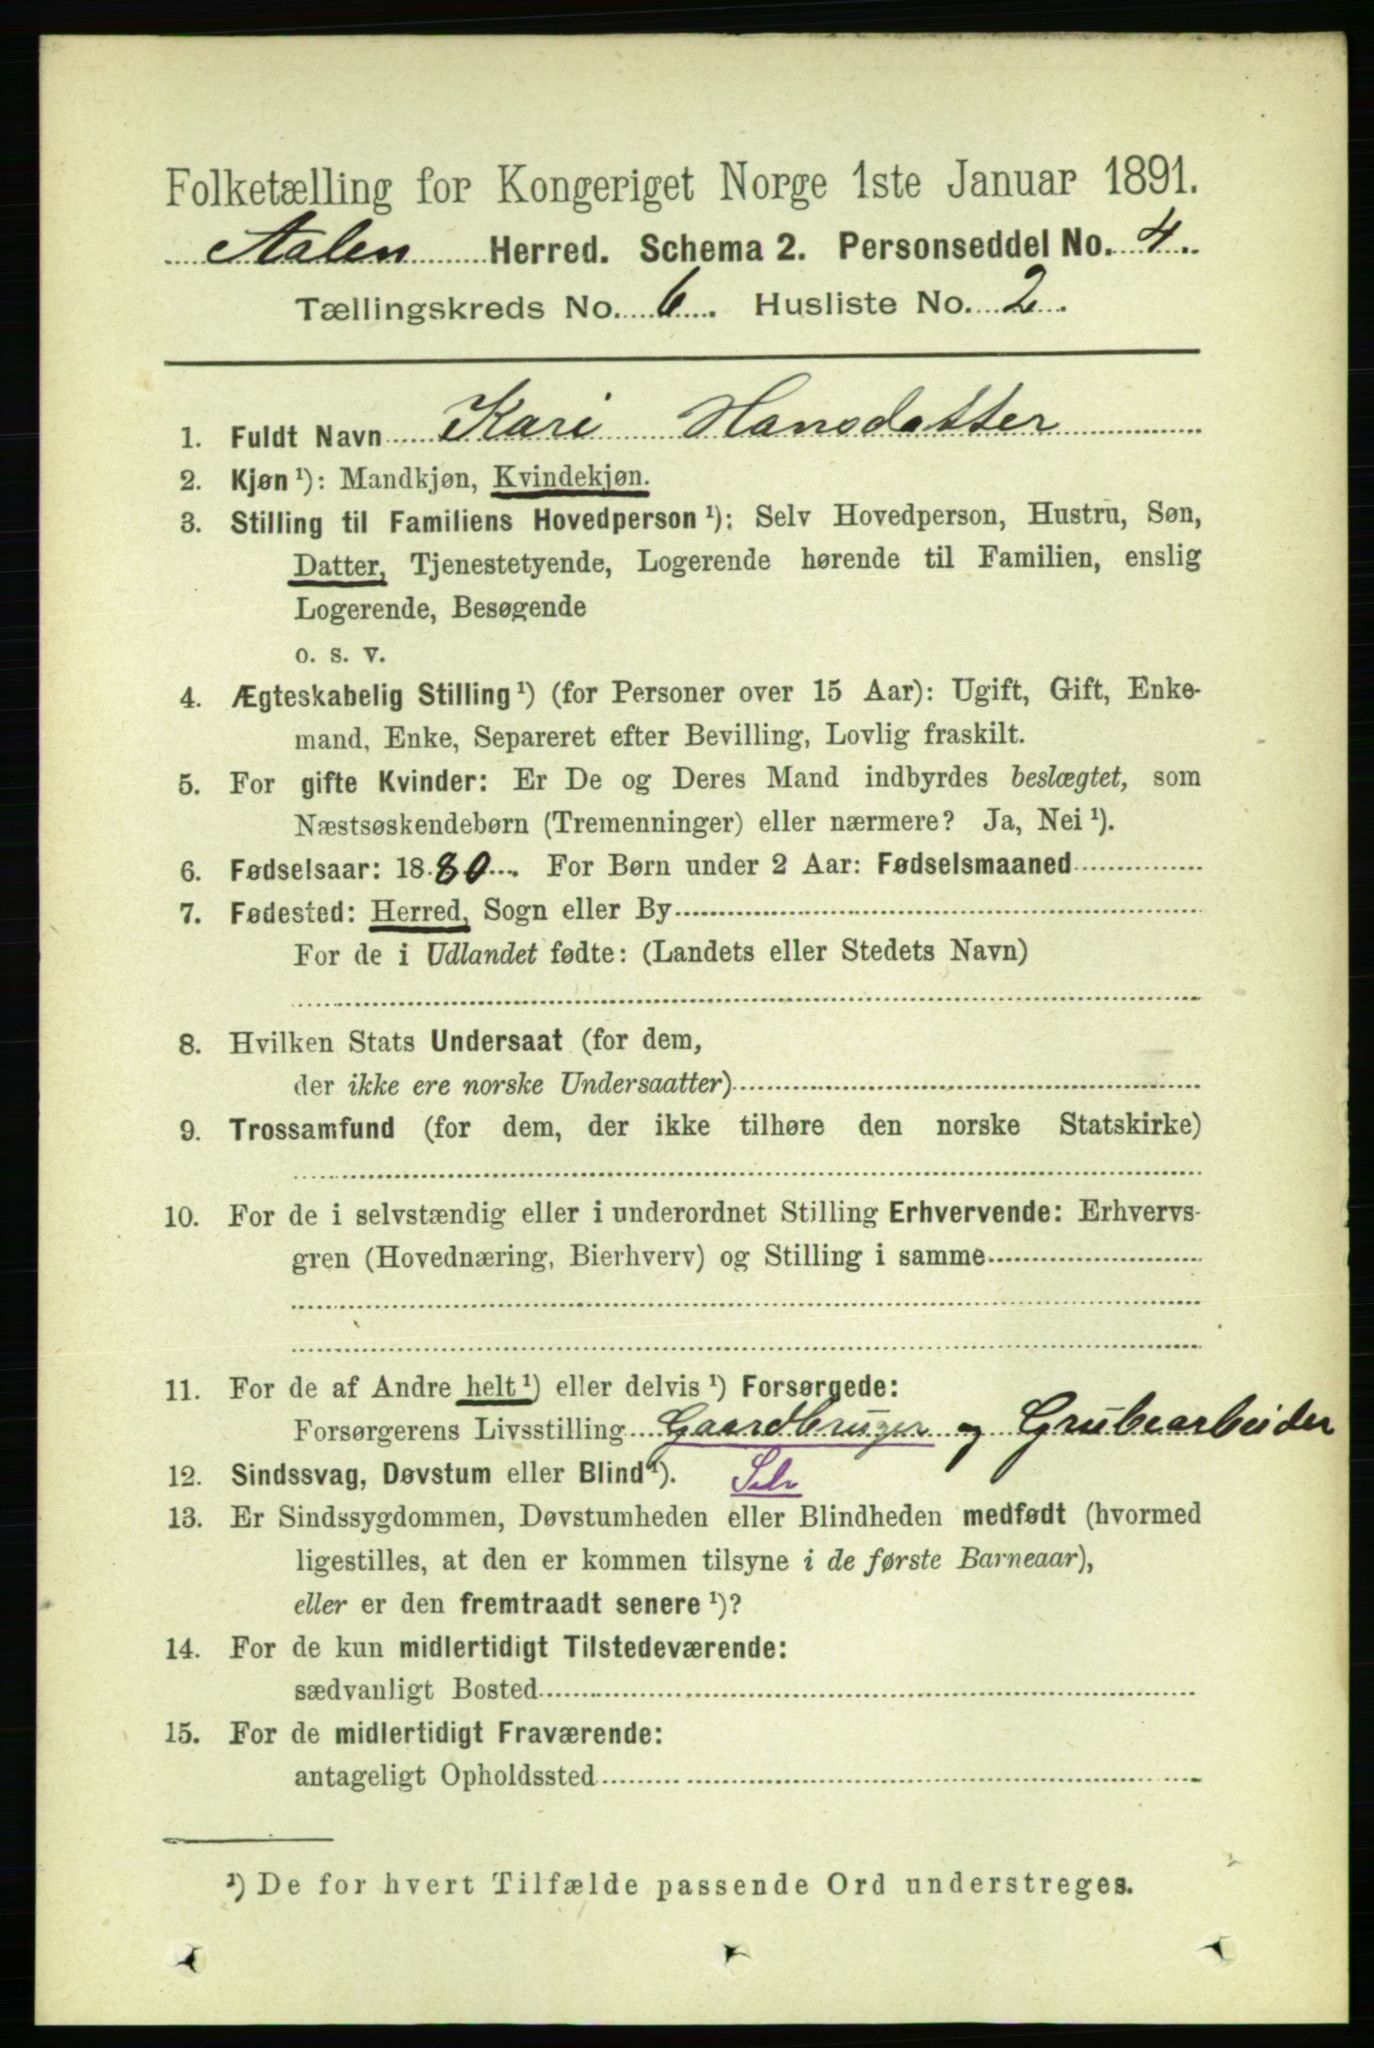 Folketælling for Kongeriget Norge 1ste Januar 1891.
Aalen Herred. Schema 2. Personseddel No. 4.
Tællingskreds No. 6. Husliste No. 2.
1. Fuldt Navn Kari Hansdatter
2. Kjøn¹): Mandkjøn, Kvindekjøn.
3. Stilling til Familiens Hovedperson¹): Selv Hovedperson, Hustru, Søn,
Datter, Tjenestetyende, Logerende hørende til Familien, enslig
Logerende, Besøgende
o. s. v.
4. Ægteskabelig Stilling¹) (for Personer over 15 Aar): Ugift, Gift, Enke-
mand, Enke, Separeret efter Bevilling, Lovlig fraskilt.
5. For gifte Kvinder: Er De og Deres Mand indbyrdes beslægtet, som
Næstsøskendebørn (Tremenninger) eller nærmere? Ja, Nei¹).
6. Fødselsaar: 1880. For Børn under 2 Aar: Fødselsmaaned
7. Fødested: Herred, Sogn eller By
For de i Udlandet fødte: (Landets eller Stedets Navn)
8. Hvilken Stats Undersaat (for dem,
der ikke ere norske Undersaatter)
9. Trossamfund (for dem, der ikke tilhøre den norske Statskirke)
10. For de i selvstændig eller i underordnet Stilling Erhvervende: Erhvervs-
gren (Hovednæring, Bierhverv) og Stilling i samme
11. For de af Andre helt¹) eller delvis¹) Forsørgede:
Forsørgerens Livsstilling Gaardbruger og Grubearbeider
12. Sindssvag, Døvstum eller Blind¹). Selv
13. Er Sindssygdommen, Døvstumheden eller Blindheden medfødt (hvormed
ligestilles, at den er kommen tilsyne i de første Barneaar),
eller er den fremtraadt senere¹)?
14. For de kun midlertidigt Tilstedeværende:
sædvanligt Bosted
15. For de midlertidigt Fraværende:
antageligt Opholdssted
¹) De for hvert Tilfælde passende Ord understreges.